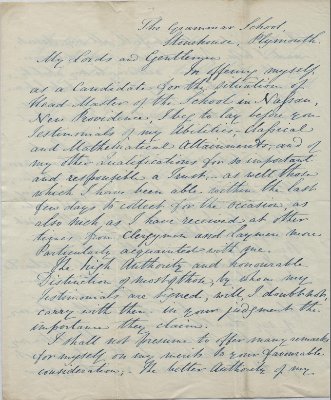 The Grammar School,
Stonehouse, Plymouth.
My Lords and Gentlemen
In offering myself
as a Candidate for the situation of
Head Master of the School in Nassau,
New Providence, I beg to lay before you
Testimonials of my Abilities, Classical
and Mathematical Attainments, and of
my other qualifications for so important
and responsible a Trust, as well those
which I have been able within the last
few days to collect for the occasion, as
also such as I have received at other
times from Clergymen and Laymen more
Particularly acquainted with me.
The high Authority and honourable
Distinction of most of those by whom my
Testimonials are signed, will I doubt not,
carry with them in your judgment the
importance they claim.
I shall not presume to offer many remarks
for myself on my merits to your favourable
consideration; The better Authority of my